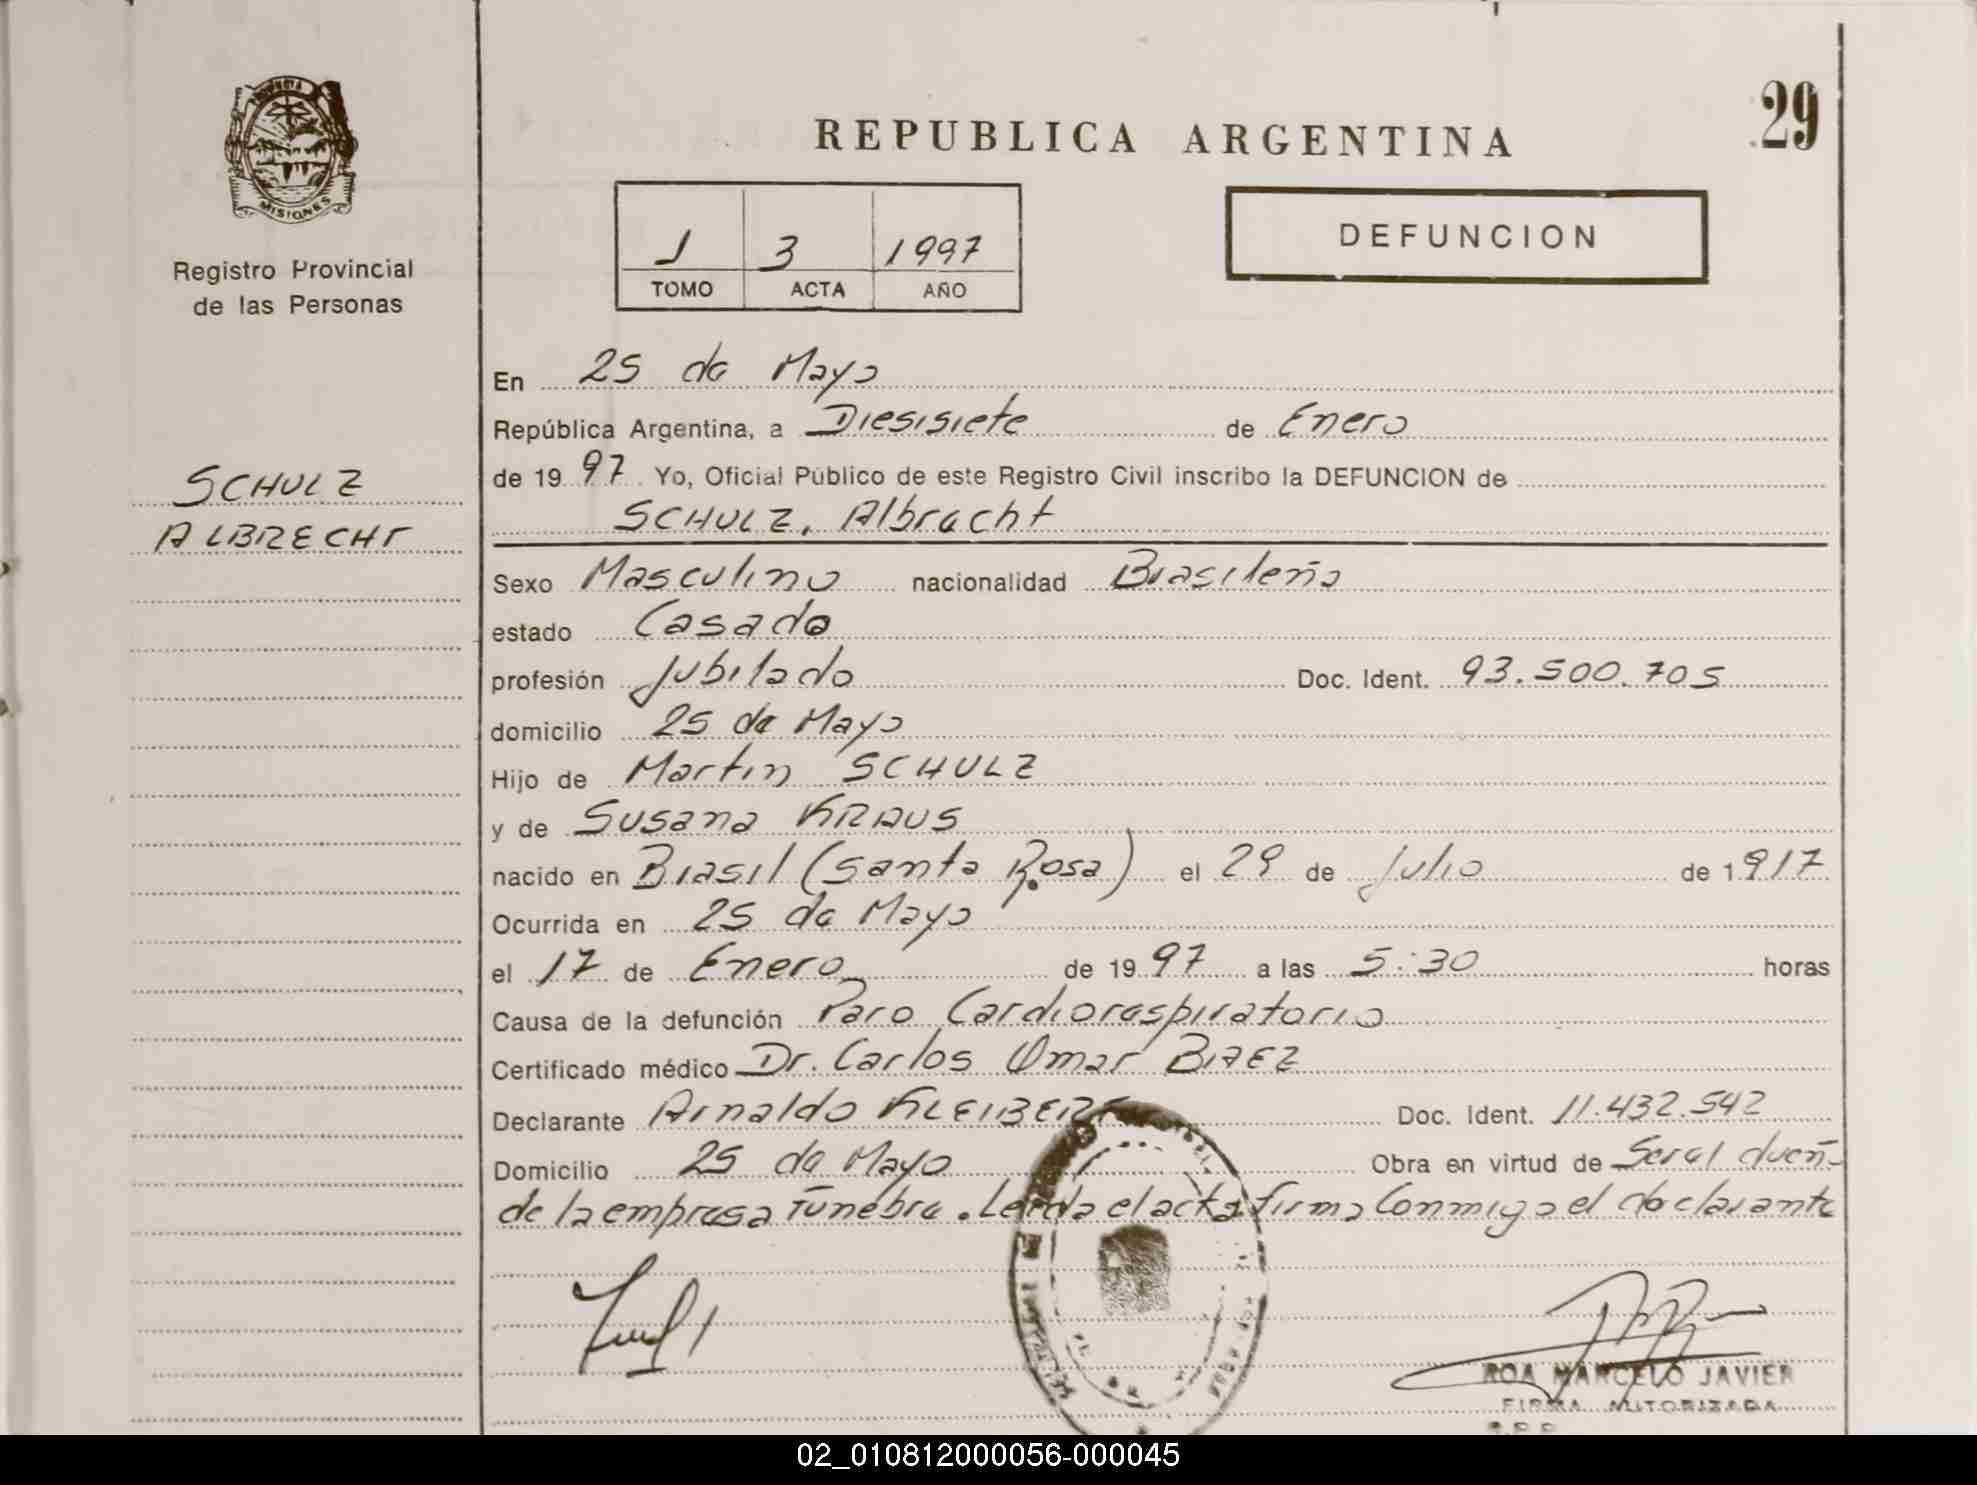 29
REPUBLICA ARGENTINA
DEFUNCION
MISIONES
Registro Provincial
de las Personas
1 3 1997
TOMO ACTA AÑO
SCHULZ
ALBRECHT
En 25 de Mayo
República Argentina, a Diesisiete de Enero
de 19 97 Yo, Oficial Público de este Registro Civil inscribo la DEFUNCION de
SCHULZ, Albrecht
Sexo Masculino nacionalidad Brasileña
estado Casado
profesión Jubilado Doc. Ident. 93.500.705
domicilio 25 de Mayo
Hijo de Martin SCHULZ
y de Susana KRAUS
nacido en Brasil (Santa Rosa) el 29 de Julio de 1917
Ocurrida en 25 de Mayo
el 17 de Enero de 19 97 a las 5:30 horas
Causa de la defunción Paro Cardiorespiratorio
Certificado médico Dr. Carlos Omar BAEZ
Declarante Arnaldo KLEIBER Doc. Ident. 11.432.542
Domicilio 25 de Mayo Obra en virtud de Ser el dueñ-
de la empresa Funebre. Leida el acta firma Conmigo el declarante
ROA MARCELO JAVIER
FIRMA AUTORIZADA
02_010812000056-000045